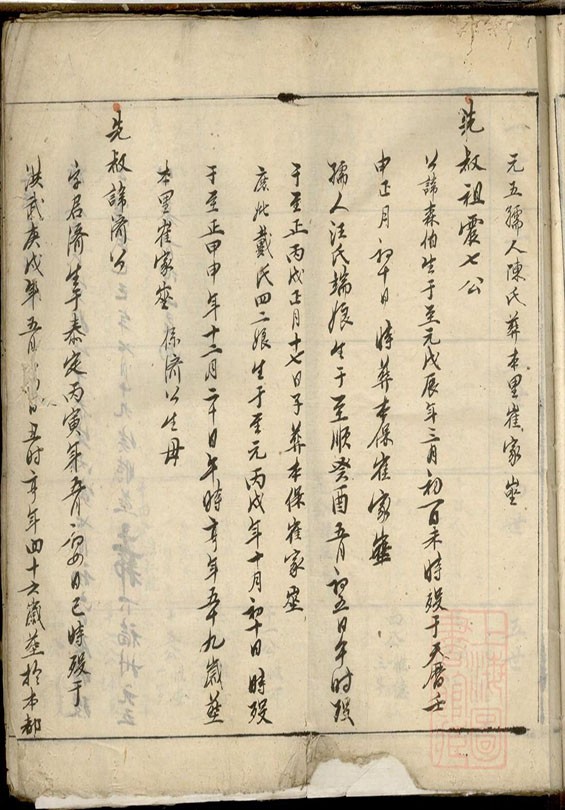 元五孺人陳氏葬本里崔家塋
先叔祖震七公
公諱森伯生于至元戊辰年三月初一日未時殁于天曆壬
申正月初十日時葬本保崔家塋
孺人汪氏端娘生于至順癸酉五月初五日午时殁
于至正丙戌正月十七日子葬本保崔家塋
庶妣戴氏四二娘生于至元丙戌年十月初十日時殁
于至正甲申年十二月二十日午時享年五十九歲葬
本里崔家塋係濟公生母
先叔諱濟公
字君濟生于泰定丙寅年五月初四日巳時殁于
洪武庚戌年五月日丑时享年四十六歲葬於本都
上海圖書館藏